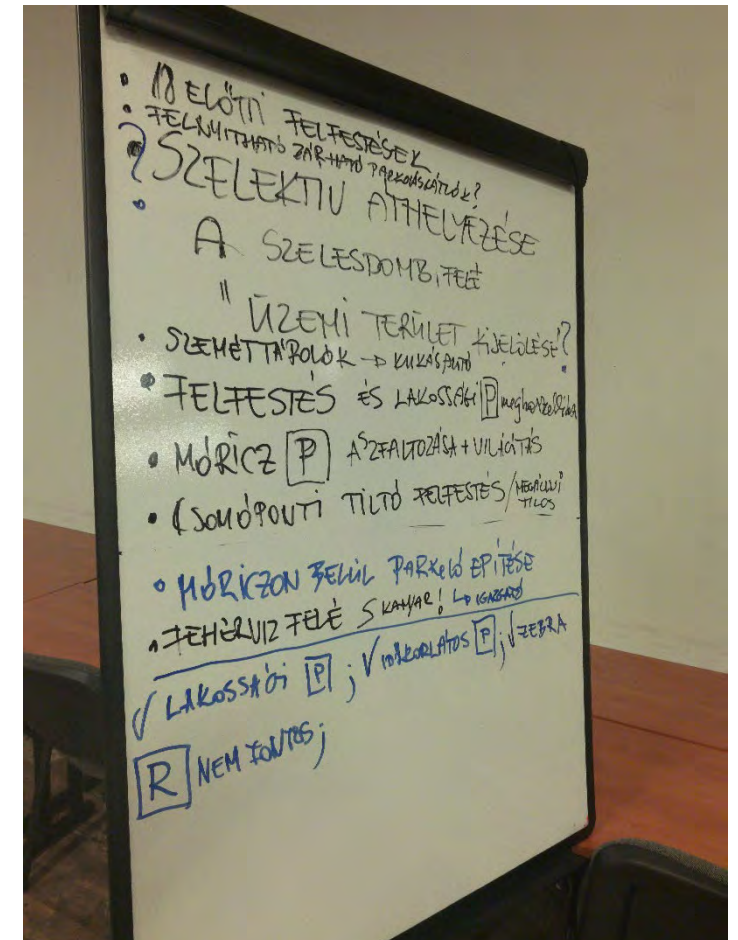 • 18 ELŐTTI FELFESTÉSEK
• FELNYITHATÓ ZÁRHATÓ PARKOLÁSGÁTLÓK?
? • SZELEKTIV ÁTHELYEZÉSE
A SZELESDOMB, FELÉ
" ÜZEMI TERÜLET KIJELÖLÉSE"?
• SZEMÉTTÁROLÓK → KUKÁSAUTÓ
• FELFESTÉS ÉS LAKOSSÁGI P
• MÓRICZ P ASZFALTOZÁSA + VILÁGÍTÁS
• CSOMÓPONTI TILTÓ FELFESTÉS / MEGÁLLNI TILOS
• MÓRICZON BELÜL PARKOLÓ ÉPÍTÉSE
• FEHÉRVIZ FELÉ S KANYAR! ↳ IGAZGATÓ
√ LAKOSSÁGI P ; √ IDŐKORLÁTOS P ; √ ZEBRA
R NEM FONTOS ;